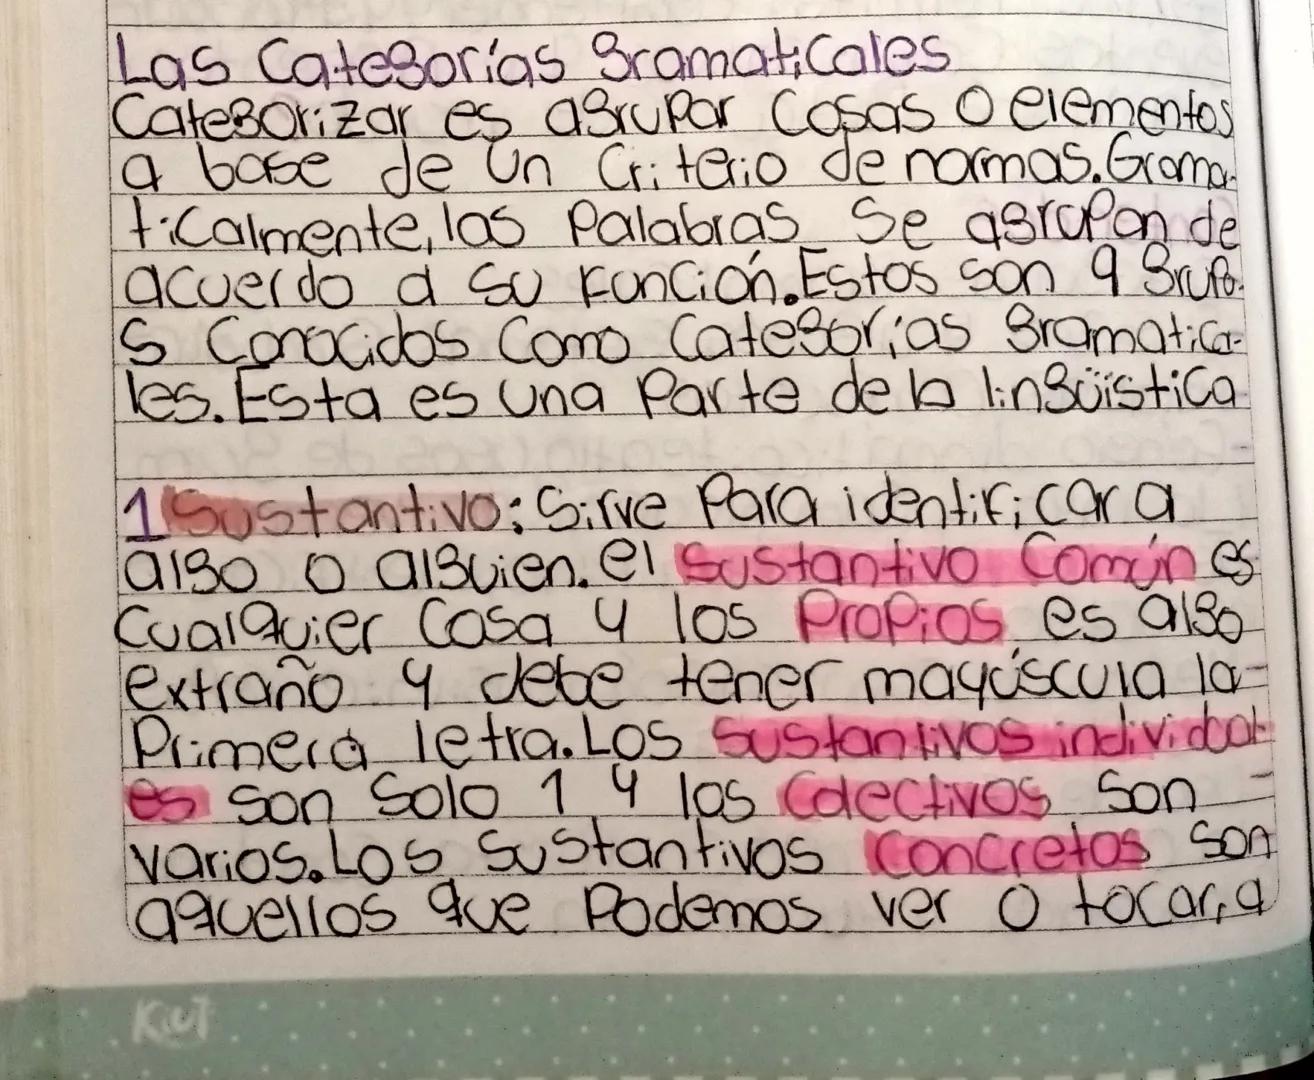 Las Categorías gramaticales
Categorizar es agrupar cosas o elementos
a base de un criterio de normas. Grama-
ticalmente, las palabras se agrupan de
acuerdo a su función. Estos son 9 grupo-
s conocidos como categorías gramatica-
les. Esta es una parte de la lingüistica
1 Sustantivo: Sirve para identificar a
algo o alguien. el sustantivo común es
cualquier cosa y los propios es algo
extraño y debe tener mayúscula la-
primera letra. Los sustantivos individual-
es son solo 1 y los colectivos son -
varios. Los sustantivos concretos son
aquellos que podemos ver o tocar, a
Kiut